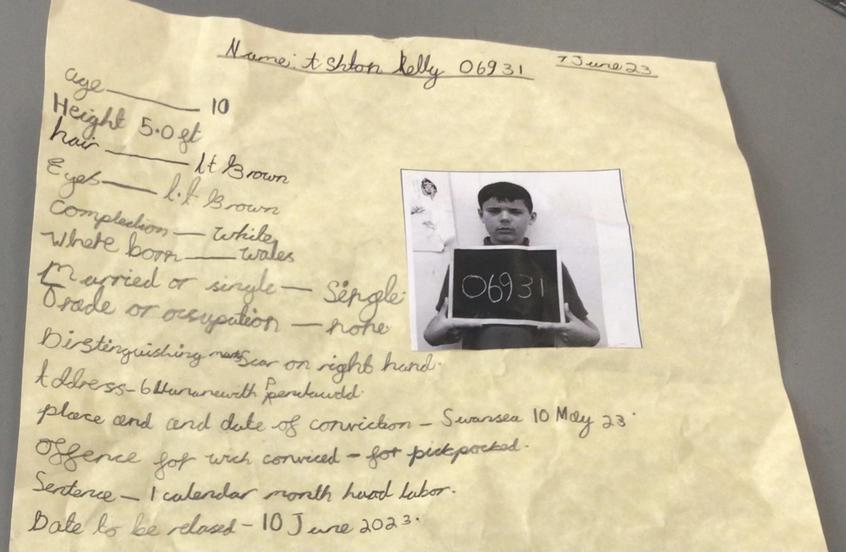 Name: Ashton Kelly 06931 7 June 23
age 10
Height 5.0 ft
hair Lt Brown
Eyes Lt Brown
Complection white
Where born wales
Married or single Single
Trade or occupation none
Distinguishing marks Scar on right hand.
Address - 6
place and and date of conviction - Swansea 10 May 23.
Offence for wich conviced - for pickpocked.
Sentence - 1 calendar month haad labor.
Date to be relased - 10 June 2023.
06931